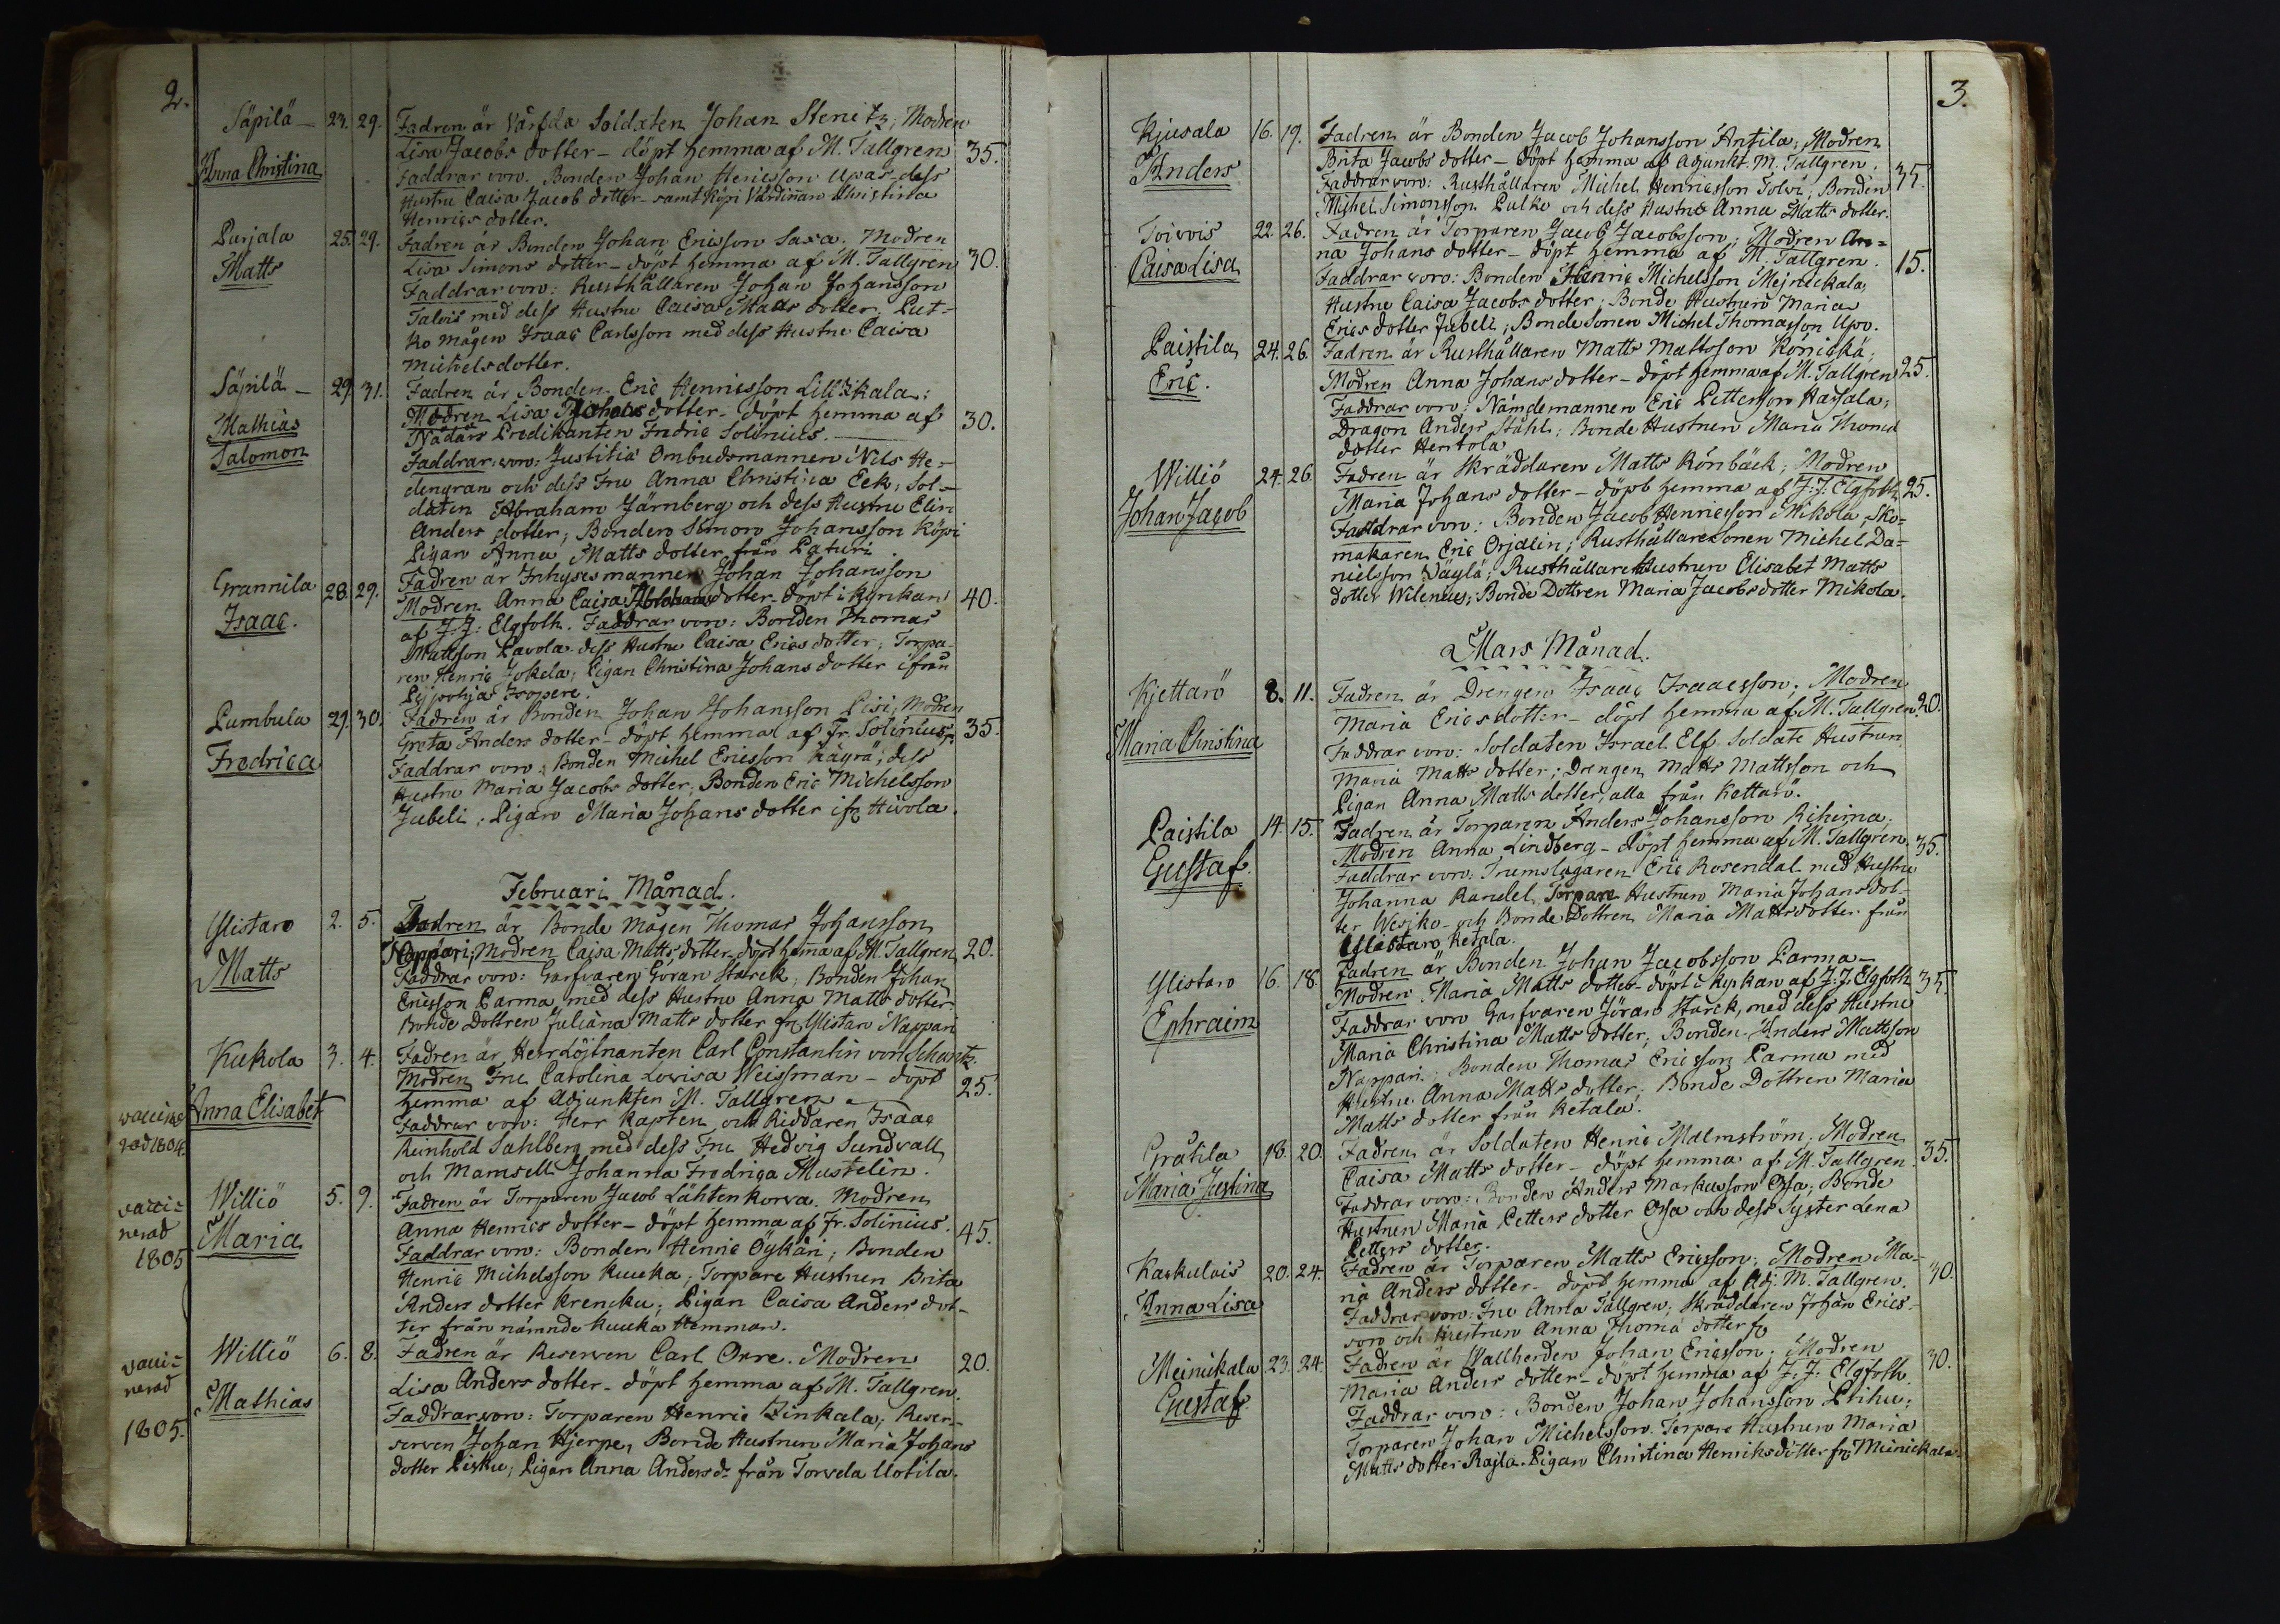 2.
Säpilä - 23. 29. Fadren är Värfda Soldaten Johan Stenitz; Modren
Lisa Jacobs dotter - döpt hemma af M. Tallgren 35.
Anna Christina
Faddrar voro. Bonden Johan Henricsson Upas dess
Hustru Caisa Jacob dotter - samt Köpi Värdinnan Christina
Henrics dotter.
Purjala 25. 29. Fadren är Bonden Johan Ericsson Saxa. Modren
Matts
Lisa Simons dotter - döpt hemma af M. Tallgren 30.
Faddrar voro: Rusthållaren Johan Johansson
Talvis med dess Hustru Caisa Matts dotter. Put-
ko mågen Isaac Carlsson med dess Hustru Caisa
Michelsdotter.
Säpilä - 29. 31. Fadren är Bonden Eric Henricsson Lillikkala;
Mathias
Modren Lisa dotter - döpt hemma af 30.
Salomon
Nådårs Predikanten Fredric Solinius.
Faddrar voro: Justitiæ Ombudsmannen Nils He-
dengran och dess Fru Anna Christina Eek; Sol-
daten Abraham Järnberg och dess Hustru Elin
Anders dotter; Bonden Simon Johansson Köpi
Pigan Anna Matts dotter från Paturi.
Grannila 28. 29. Fadren är Inhysesmannen Johan Johansson
Isaac.
Modren Anna Caisa Abrahams dotter - döpt i Kyrkan 40.
af J: J: Elgfoth. Faddrar voro: Bonden Thomas
Mattsson Pavola dess Hustru Caisa Erics dotter; Torpa-
ren Henric Jokela; Pigan Christina Johans dotter ifrån
Pyspohja Isopere.
Pumbula 29. 30. Fadren är Bonden Johan Johansson Pisi; Modren
Greta Anders dotter - döpt hemma af Fr. Solinius; 35.
Fredrica
Faddrar voro: Bonden Michel Ericsson Käyrä; dess
Hustru Maria Jacobs dotter; Bonden Eric Michelsson
Jubeli; Pigan Maria Johans dotter ifr. Hivola.
Februari Månad.
Ylistaro 2. 5. Fadren är Bonde Mågen Thomas Johansson
Nappari; Modren Caisa Matts dotter - döpt hemma af M. Tallgren 20.
Matts
Faddrar voro: Garfvaren Göran Starck; Bonden Johan
Ericsson Parma med dess Hustru Anna Matts dotter
Bonde Dottren Juliana Matts dotter fr. Ylistaro Nappari
Kukola 3. 4. Fadren är Herr Löjtnanten Carl Constantin von Schantz.
Modren Fru Carolina Lovisa Weissman - döpt 25.
Anna Elisabet
hemma af Adjunkten M. Tallgren.
vacciner
rad 1804.
Faddrar voro: Herr Kapten och Riddaren Isaac
Reinhold Sahlberg med dess Fru Hedvig Sundvall
och Mamsell Johanna Fredriga Mustelin.
Williö 5. 9. Fadren är Torparen Jacob Lähtenkorva. Modren
vacci-
nerad
1805
Maria
Anna Henrics dotter - döpt hemma af Fr. Solinius. 45.
Faddrar voro: Bonden Henric Öykäri; Bonden
Henric Michelsson Kuuka; Torpare Hustrun Brita
Anders dotter Krencku; Pigan Caisa Anders dot-
ter från nämnde Kuuka Hemman.
Williö 6. 8. Fadren är Reserven Carl Orre. Modren 20.
vacci-
nerad
1805.
Mathias
Lisa Anders dotter - döpt hemma af M. Tallgren.
Faddrar voro: Torparen Henric Zinkala; Reser-
serven Johan Hjerpe, Bonde Hustrun Maria Johans
dotter Pisku; Pigan Anna Anders d:r från Torvela Uotila.
3.
Kjusala 16. 19. Fadren är Bonden Jacob Johansson Antila; Modren
Anders
Brita Jacobs dotter - döpt hemma af Adjunkt. M. Tallgren. 35.
Faddrar voro: Rusthållaren Michel Henricsson Tolvi; Bonden
Michel Simonsson Pulko och dess Hustru Anna Matts dotter.
Toivois 22. 26. Fadren är Torparen Jacob Jacobsson; Modren An-
Caisa Lisa
na Johans dotter - döpt hemma af M. Tallgren. 15.
Faddrar voro: Bonden Henric Michelsson Mejnickala,
Hustru Caisa Jacobs dotter; Bonde Hustrun Maria
Erics dotter Jubeli; Bonde Sonen Michel Thomasson Upo.
Paistila 24. 26. Fadren är Rusthållaren Matts Mattsson Könickä;
Eric.
Modren Anna Johans dotter - döpt hemma af M. Tallgren 25.
Faddrar voro: Nämdemannen Eric Pettersson Harjala;
Dragon Anders Ståhl; Bonde Hustrun Maria Thoma
dotter Hentola
Williö 24. 26. Fadren är Skräddaren Matts Rönbäck; Modren
Johan Jacob
Maria Johans dotter - döpt hemma af J: J: Elgfoth 25.
Faddrar voro: Bonden Jacob Henricsson Mikola, Sko-
makaren Eric Orjalin; Rusthållare Sonen Michel Da-
nielsson Väylä; Rusthållare Hustrun Elisabet Matts
dotter Wilenius; Bonde Dottren Maria Jacobs dotter Mikola.
Mars Månad.
Kjettarö 8. 11. Fadren är Drengen Isaac Isaacsson; Modren
Maria Christina
Maria Ericsdotter - döpt hemma af M. Tallgren 20.
Faddrar voro: Soldaten Israel Elf Soldate Hustrun
Maria Matts dotter; Drengen Matts Mattsson och
Pigan Anna Matts dotter, alla från Kettarö.
Paistila 14. 15. Fadren är Torparen Anders Johansson Rihima,
Gustaf
Modren Anna Lindberg - döpt hemma af M. Tallgren. 35.
Faddrar voro: Trumslagaren Eric Rosendal med Hustru
Johanna Randel, Torpare Hustrun Maria Johans dot-
ter Wesiko - och Bonde Dottren Maria Mattsdotter från
Ylistaro Ketala.
Ylistaro 16. 18. Fadren är Bonden Johan Jacobsson Parma -
Ephraim
Modren Maria Matts dotter - döpt i Kyrkan af J: J. Elgfoth 35.
Faddrar voro Garfvaren Jöran Starck, med dess Hustru
Maria Christina Matts dotter; Bonden Anders Mattsson
Nappari; Bonden Thomas Ericsson Parma med
Hustru Anna Matts dotter; Bonde Dottren Maria
Matts dotter från Ketala.
Gråtila 18. 20. Fadren är Soldaten Henric Malmström; Modren
Maria Justina
Caisa Matts dotter - döpt hemma af M. Tallgren. 35.
Faddrar voro: Bonden Anders Markusson Ossa; Bonde
Hustrun Maria Petters dotter Ossa och dess Syster Lena
Petters dotter.
Karkulais 20. 24. Fadren är Torparen Matts Ericsson; Modren Ma-
Anna Lisa
ria Anders dotter - döpt hemma af Adj. M. Tallgren. 30.
Faddrar voro: Fru Anna Tallgren; Skräddaren Johan Erics-
son och Hustrun Anna Thoma dotter
Meinikala 23. 24. Fadren är Wallherden Johan Ericsson; Modren 30.
Gustaf
Maria Anders dotter - döpt hemma af J. J: Elgfoth.
Faddrar voro: Bonden Johan Johansson Prihu;
Torparen Johan Michelsson. Torpare Hustrun Maria
Matts dotter Rajla. Pigan Christina Henriksdotter fr. Meinickala.